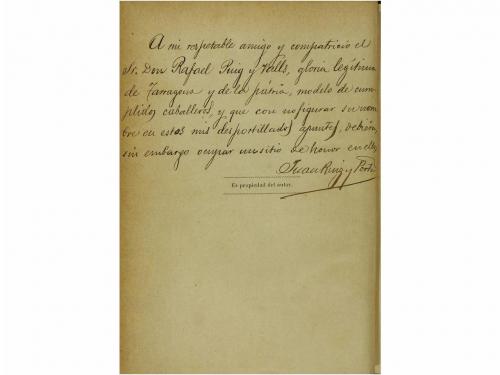 A mi respetable amigo y compatricio el
Sr. Don Rafael Puig y Valls, gloria legítima
de Tarragona y de la pátria, modelo de cum-
plidos caballeros, y que con no figurar su nom-
bre en estos mis desportillados apuntes, debiera,
sin embargo ocupar un sitio de honor en ellos
Juan Ruiz y Porta
Es propiedad del autor.